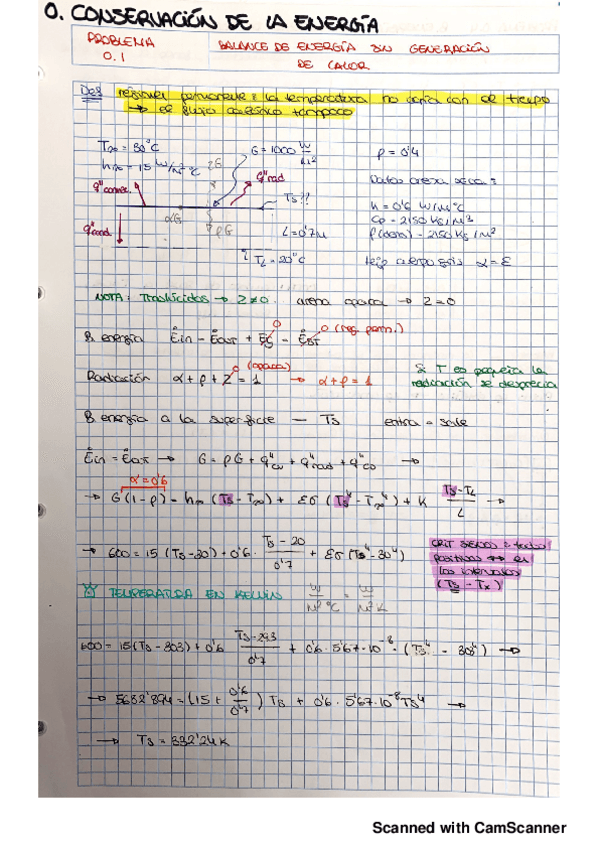 0. CONSERVACIÓN DE LA ENERGÍA
PROBLEMA 0.1
BALANCE DE ENERGÍA SIN GENERACIÓN
DE CALOR
régimen permanente: la temperatura no varía con el tiempo
→ el flujo calórico tampoco
T∞ = 30°C
h∞ = 15 W/m²°C
G = 1000 W/m²
ρ = 0'4
q"convec.
q"rad
Ts??
Datos arena seca:
αG
ρG
k = 0'6 W/m°C
q"cond.
L = 0'7m
Cp - 2150 kg/m³
2150 kg/m³
TL = 20°C
α = ε
NOTA: Translúcidos → Z ≠ 0. arena opaca → Z = 0
B. energía Ėin - Ėout + Ėg = Ėst 0 0 (reg. perm.)
Radiación α + ρ + Z = 1 → α + ρ = 1 0 (opaca)
Si T es pequeña la
radiación se desprecia
B energía a la superficie — Ts entra = sale
Ėin = Ėout → G = ρG + q"cv + q"rad + q"cd →
α = 0'6
→ G(1-ρ) = h∞ (Ts - T∞) + εσ (Ts⁴ - T∞⁴) + K (Ts - TL)/L →
→ 600 = 15 (Ts - 30) + 0'6 · (Ts - 20)/0'7 + εσ (Ts⁴ - 30⁴)
CRIT SIGNOS: todos
positivos ↔ en
los intervalos
(Ts - Tx)
TEMPERATURA EN KELVIN W/m²°C = W/m²K
600 = 15(Ts - 303) + 0'6 (Ts - 293)/0'7 + 0'6 · 5'67 · 10⁻⁸ · (Ts⁴ - 303⁴) →
→ 5632'894 = (15 + 0'6/0'7) Ts + 0'6 · 5'67 · 10⁻⁸ Ts⁴ →
→ Ts = 332'24 K
Scanned with CamScanner